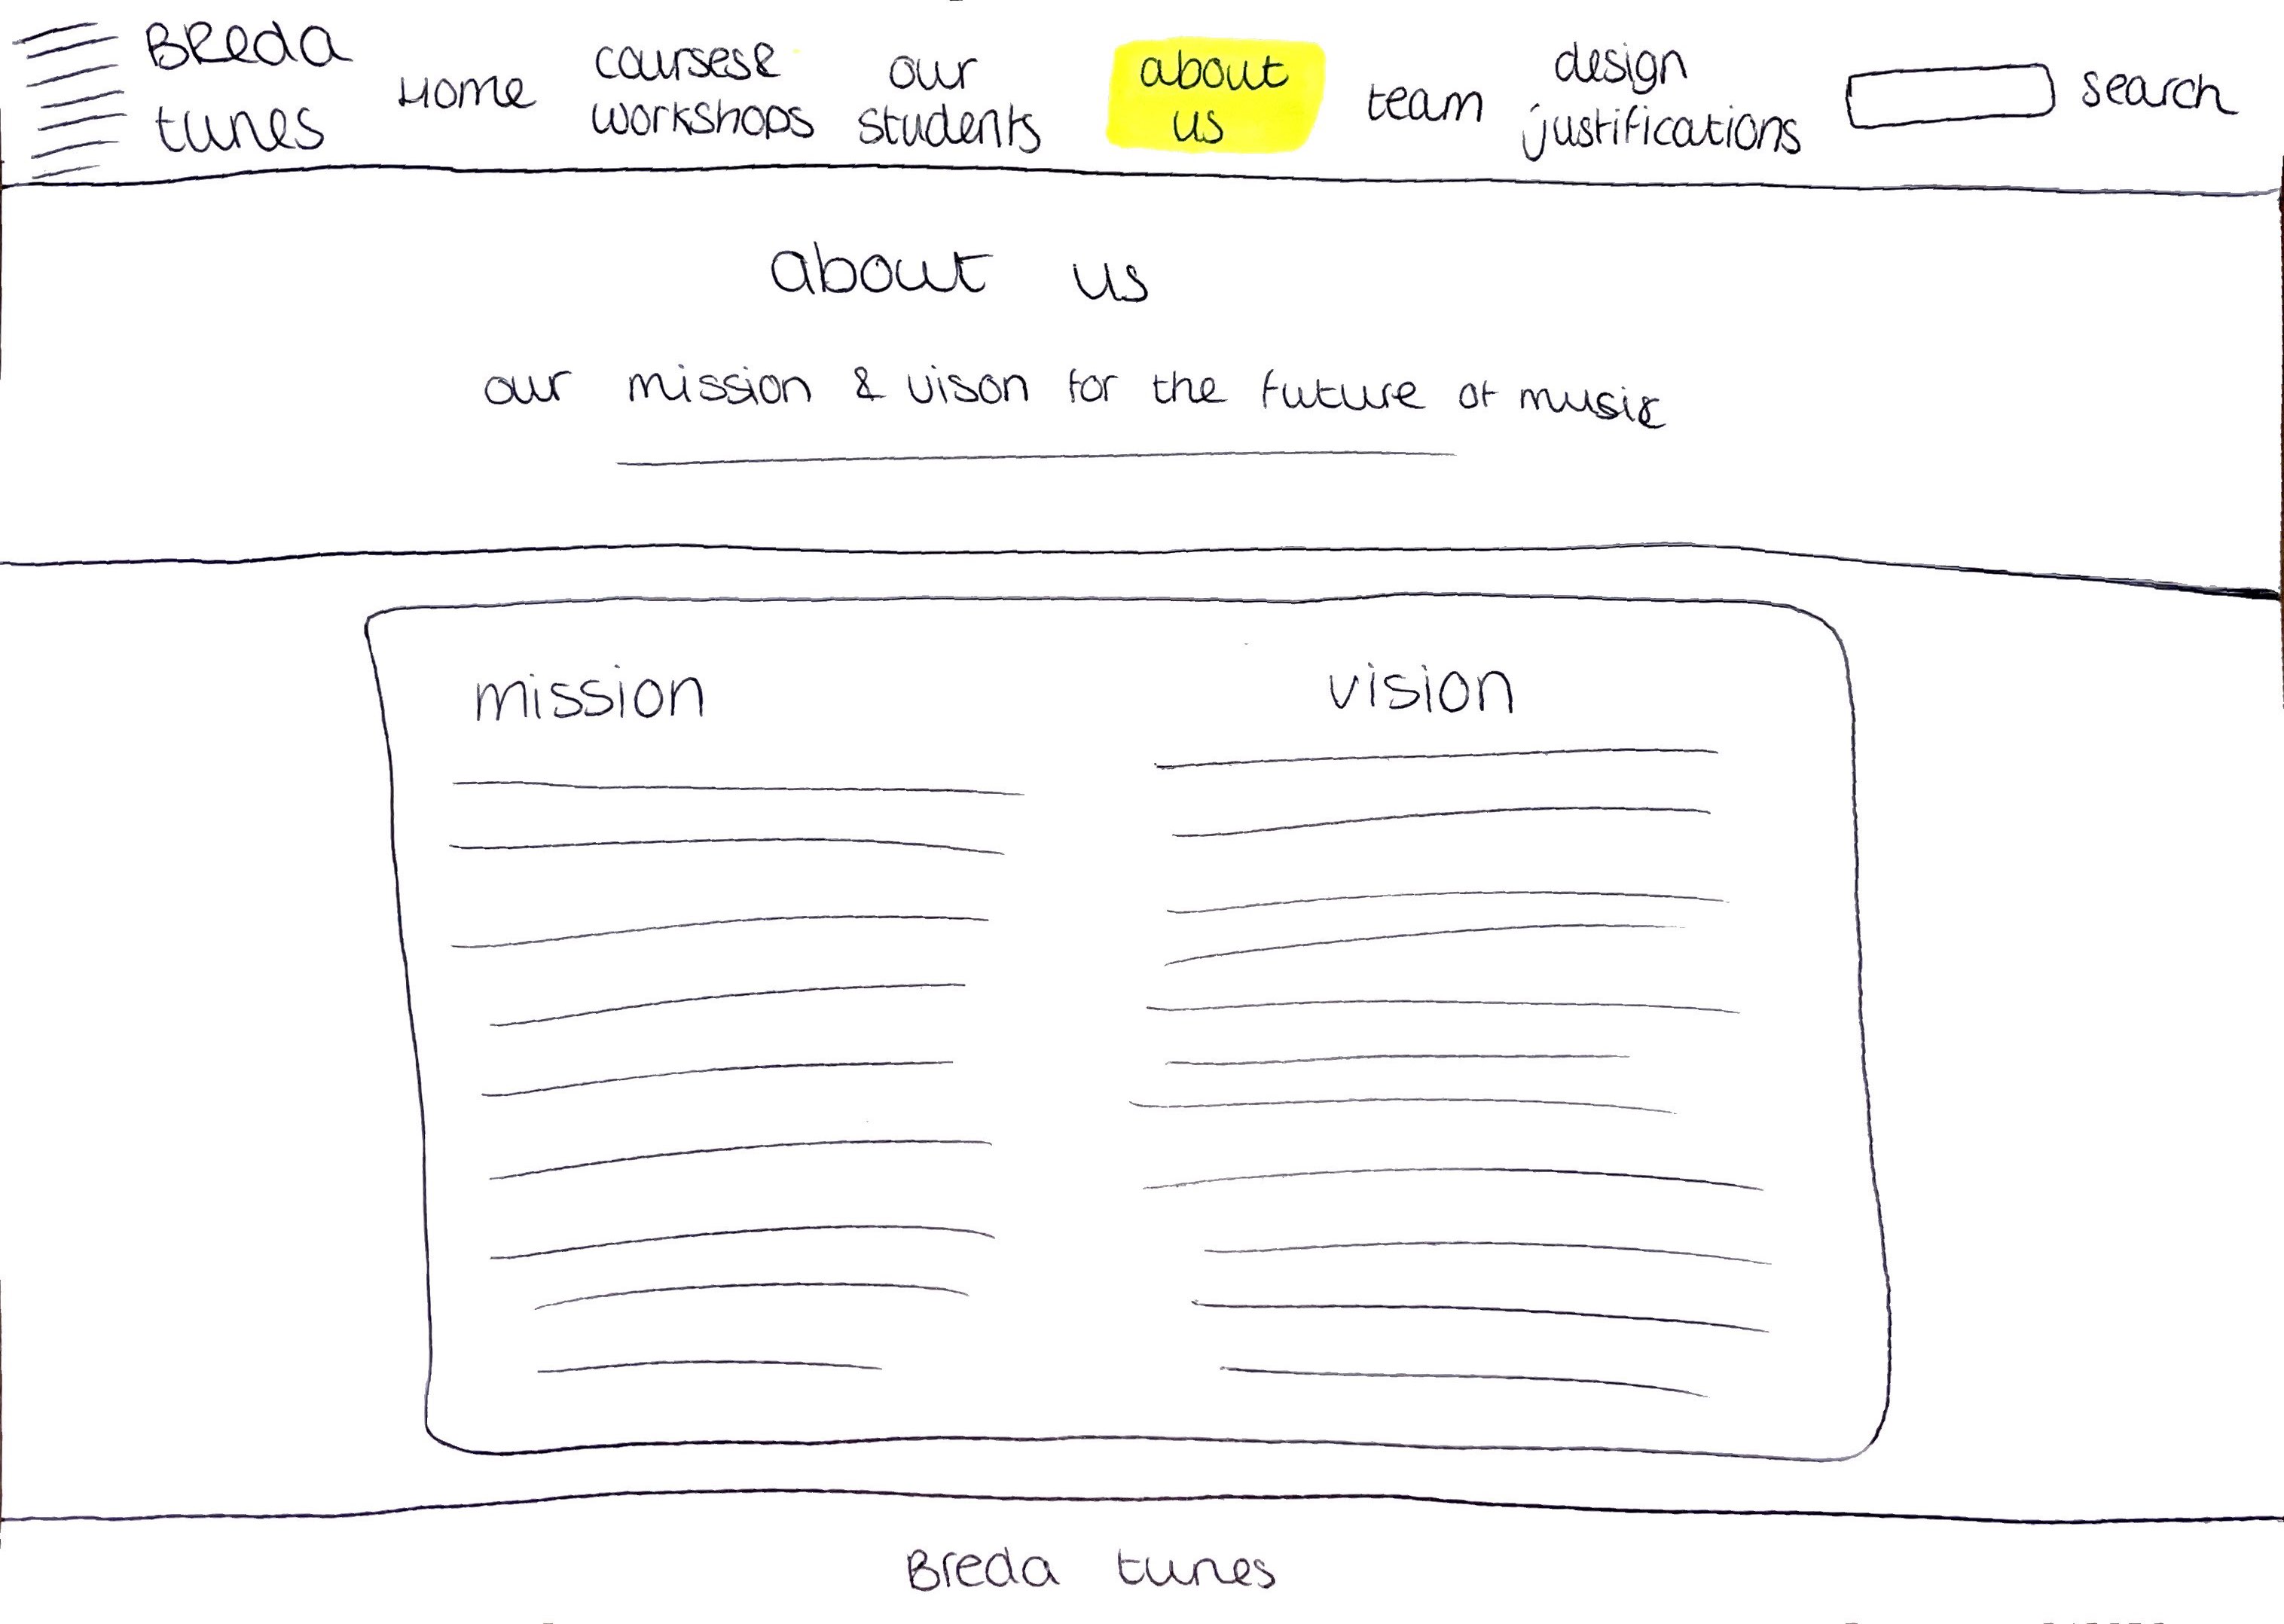 Breda
tunes
Home
courses &
workshops
our
students
about
us
team
design
justifications
search
about us
our mission & vison for the future of music
mission
vision
Breda tunes